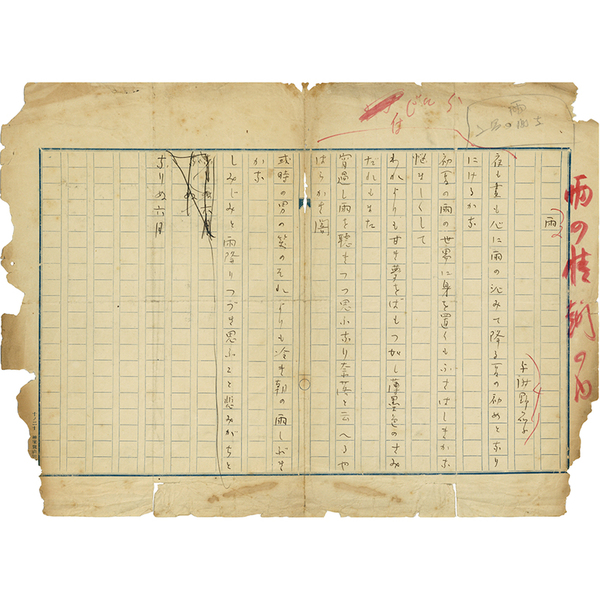 雨の情調の
雨
雨
与謝野晶子
夜も昼も心に雨の沁みて降る夏の初めとなり
にけるかな
初夏の雨の世界に身を置くもふさはしきかな
悩ましくして
われよりも甘き夢をばもつ如し薄墨色のすゐ
たれもまた
宵過し雨を聴きつつ思ふなり奈落と云へるや
はらかき闇
或時の男の笑のそれよりも冷き朝の雨しづき
かな
しみじみと雨降りつづき思ふこと悲みがちと
なりぬ六月